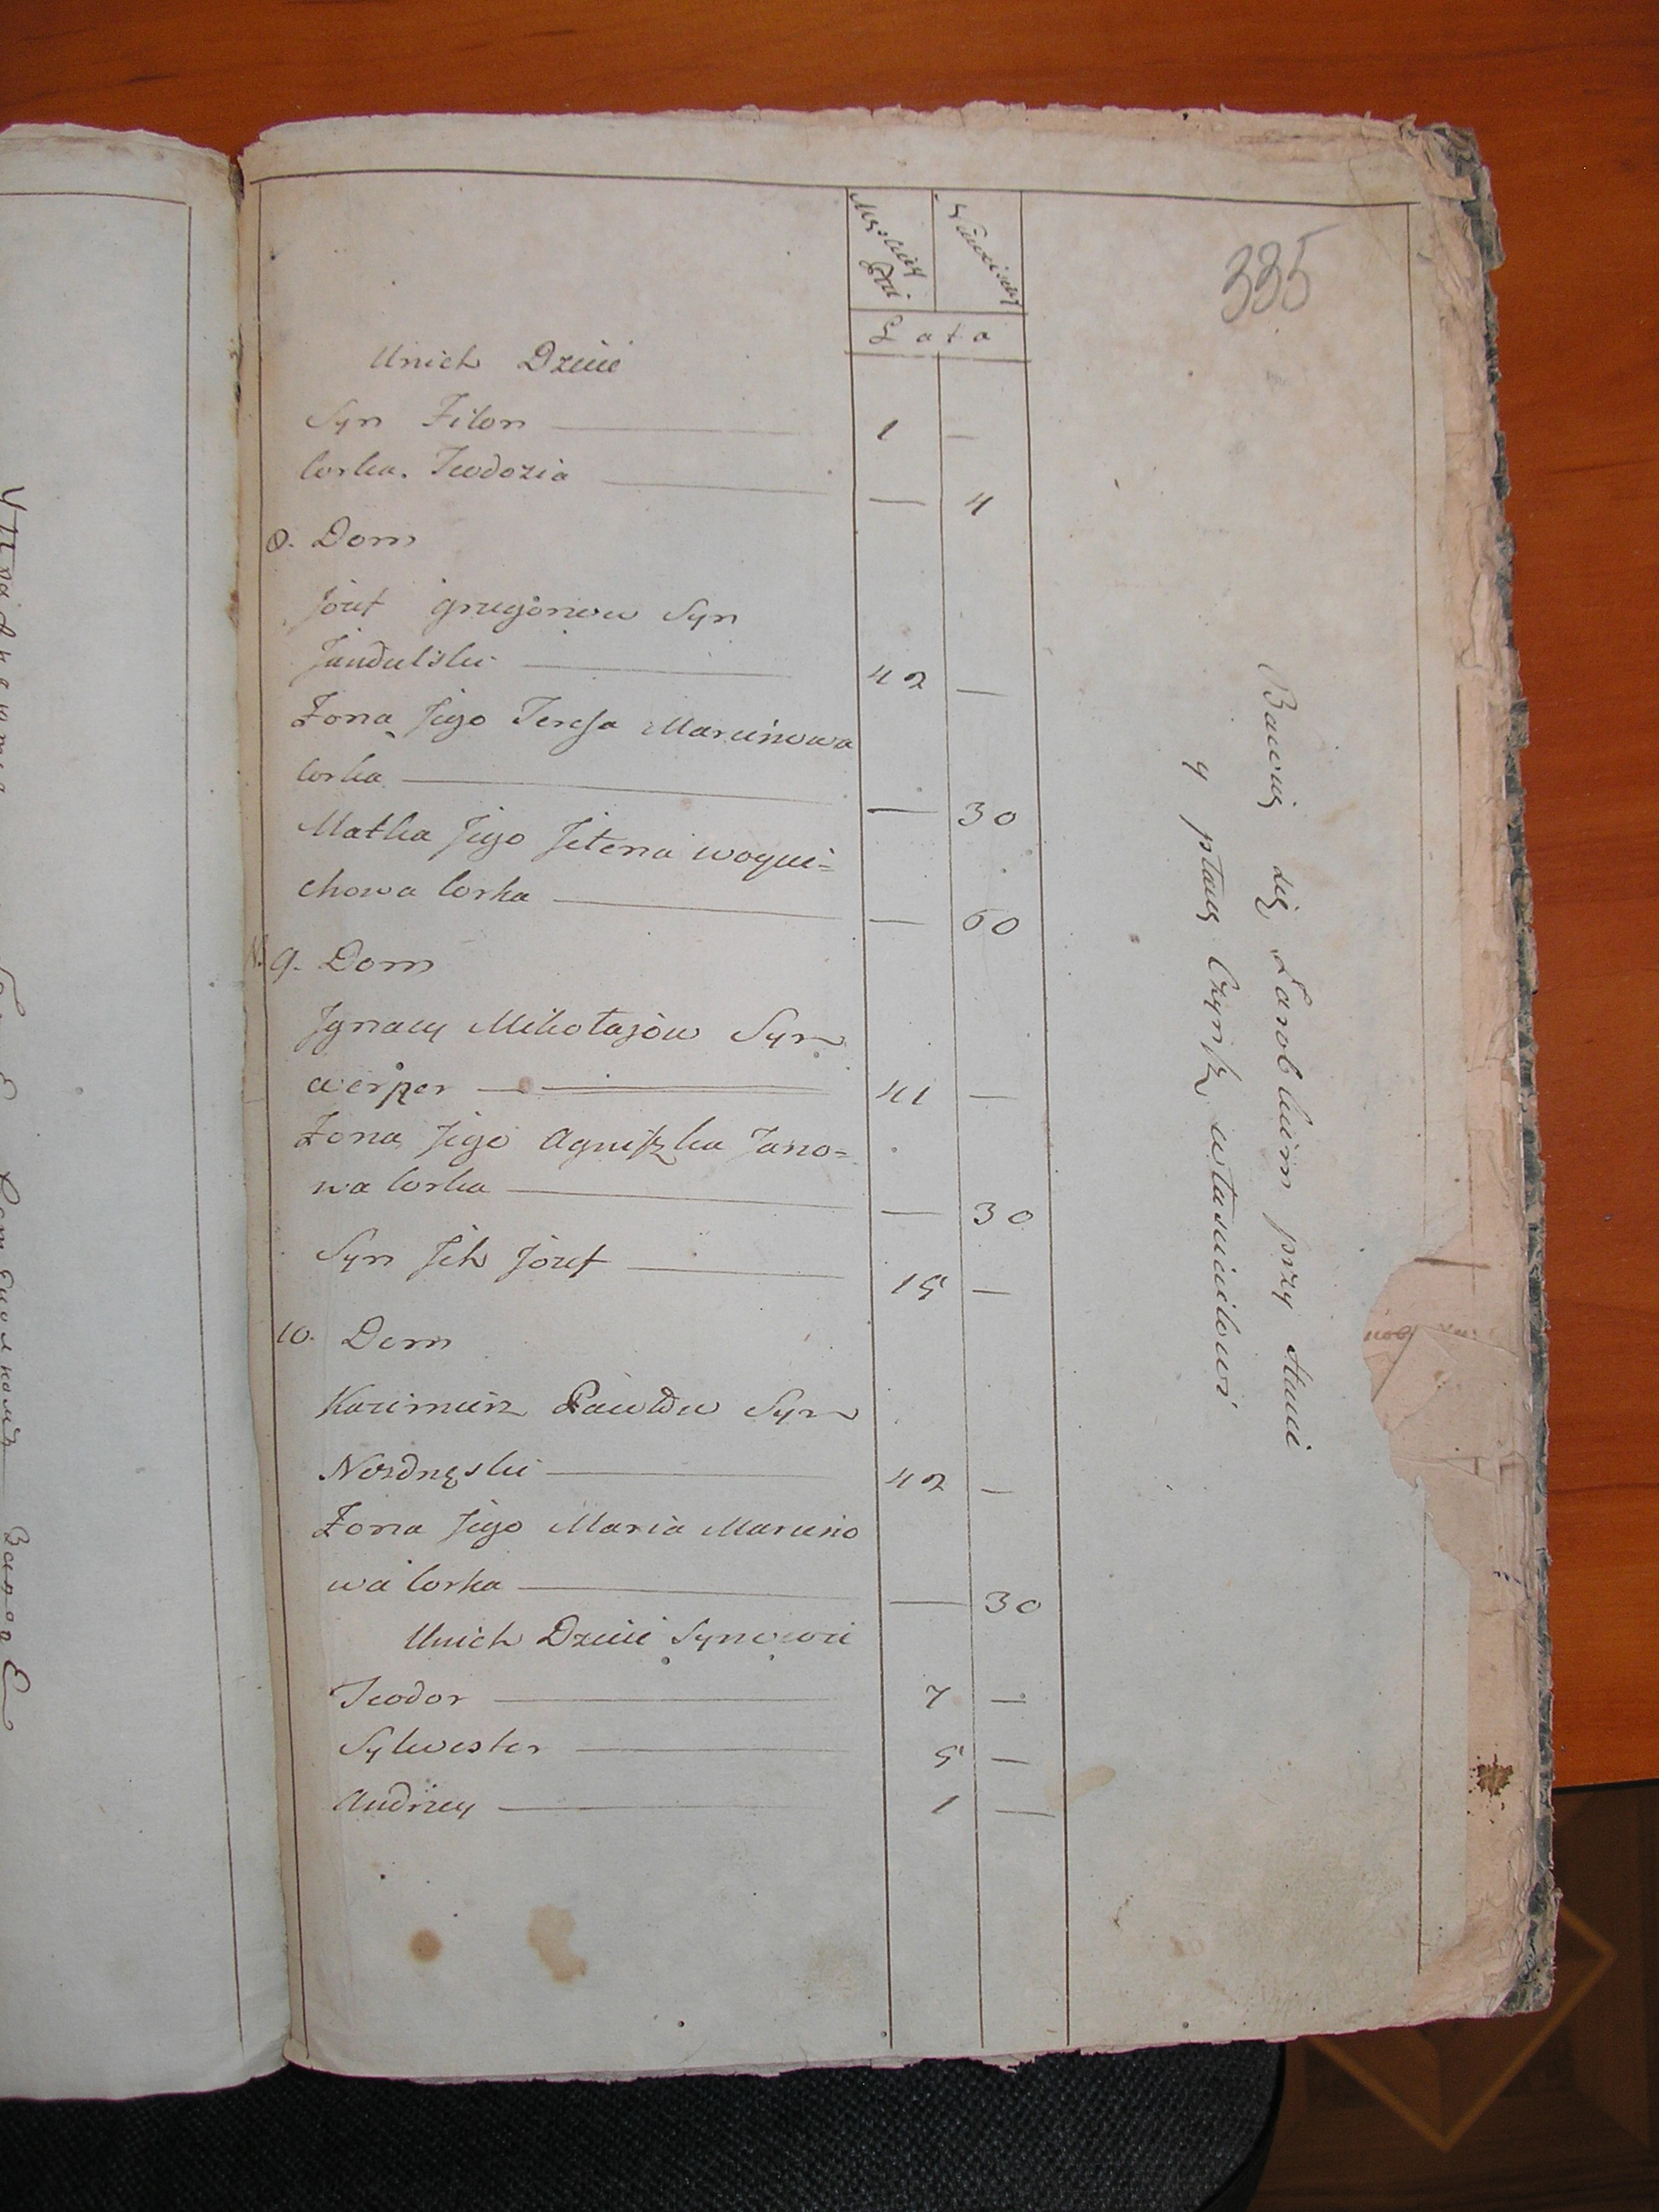 335
Męskiey Płci
Żeńskiey
Lata
Unich Dzieci
Syn Filon — 1 —
Corka. Teodozia — — 4
8. Dom
Józef Grzegorzow Syn
— 42 —
Żona Jego Teressa Marcinowa
Corka — — 30
Matka Jego Jelena woycie=
chowa Corka — — 60
9. Dom
Jgnacy Mikołajów Syn
— 41 —
Żona Jego Agniszka Jano=
wa Corka — — 30
Syn Jch Józef — 15 —
10. Dom
Kazimierz Pawłow Syn
— 42 —
Żona Jego Maria Marcino
wa Corka — — 30
Unich Dzieci Synowie
Teodor — 7 —
Sylwester — 5 —
Andrzey — 1 —
Bawią się Zarobkiem przy Stanci
y płacą Czynsz włascicielowi